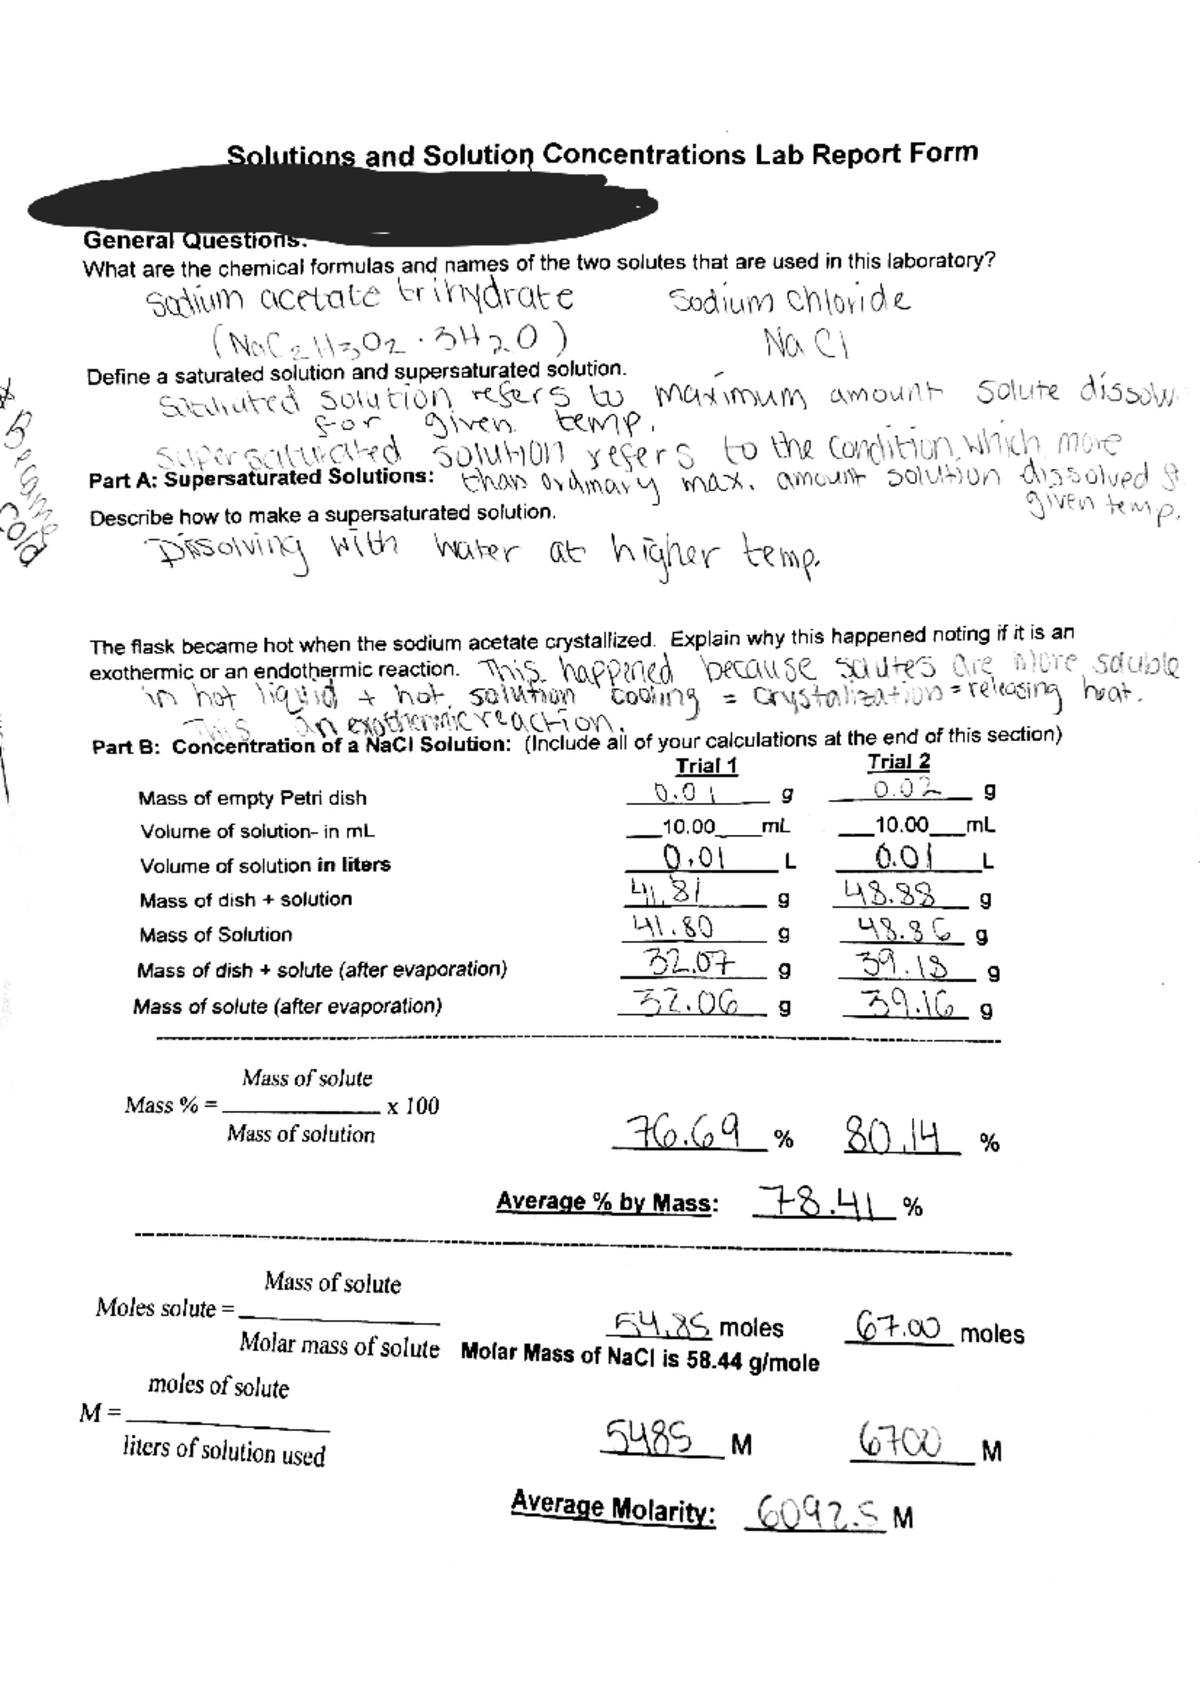 Solutions and Solution Concentrations Lab Report Form
General Questions:
What are the chemical formulas and names of the two solutes that are used in this laboratory?
Sodium acetate trihydrate Sodium chloride
(NaC2H3O2 · 3H2O) NaCl
Define a saturated solution and supersaturated solution.
solution refers to maximum amount solute dissolv
for given temp.
Supersaturated solution refers to the condition which more
Part A: Supersaturated Solutions: than ordinary max. amount solution dissolved
given temp.
* Became cold
Describe how to make a supersaturated solution.
Dissolving with water at higher temp.
The flask became hot when the sodium acetate crystallized. Explain why this happened noting if it is an
exothermic or an endothermic reaction. This happened because solutes are more soluble
in hot liquid + hot solution cooling = crystalization = releasing heat.
This an exothermic reaction.
Part B: Concentration of a NaCl Solution: (Include all of your calculations at the end of this section)
Trial 1 Trial 2
Mass of empty Petri dish 0.01 g 0.02 g
Volume of solution- in mL 10.00 mL 10.00 mL
Volume of solution in liters 0.01 L 0.01 L
Mass of dish + solution 41.81 g 48.88 g
Mass of Solution 41.80 g 48.86 g
Mass of dish + solute (after evaporation) 32.07 g 39.18 g
Mass of solute (after evaporation) 32.06 g 39.16 g
Mass of solute
Mass % = x 100 76.69 % 80.14 %
Mass of solution
Average % by Mass: 78.41 %
Mass of solute
Moles solute = 54.85 moles 67.00 moles
Molar mass of solute Molar Mass of NaCl is 58.44 g/mole
moles of solute
M = 5485 M 6700 M
liters of solution used
Average Molarity: 6092.5 M